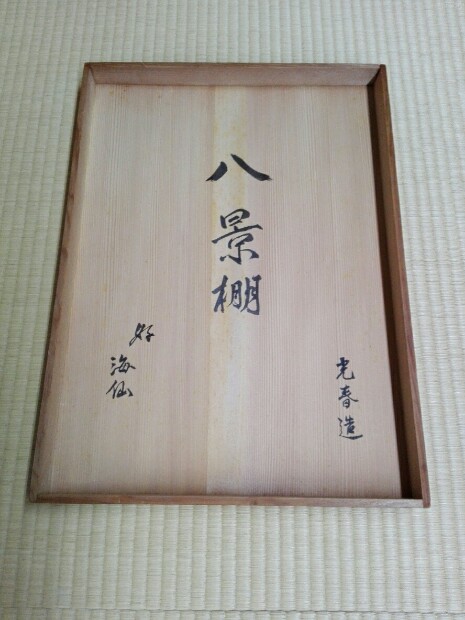 八景棚
光春造
好
海仙